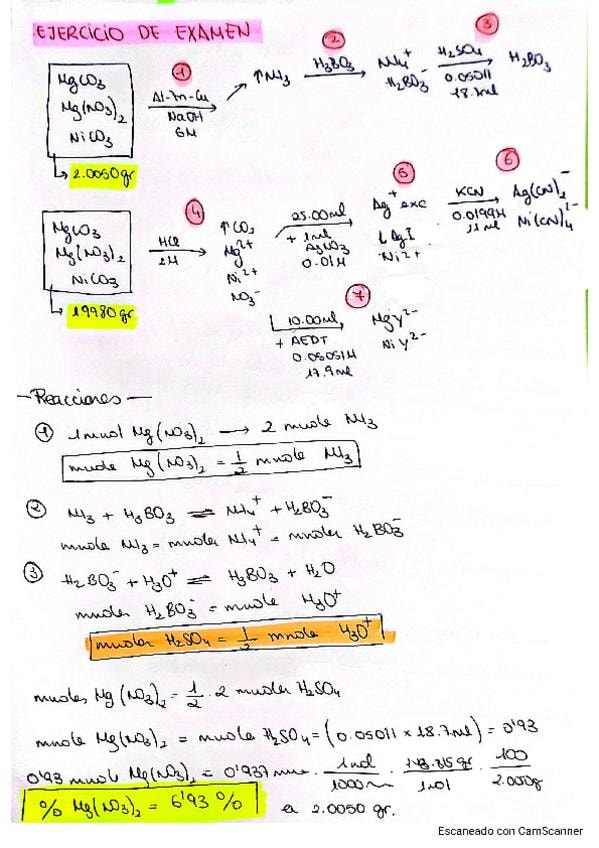 EJERCICIO DE EXAMEN
MgCO3
Mg(NO3)2
NiCO3
2.0050gr
①
Al-Zn-Cu
NaOH
6M
↑NH3
②
H3BO3
NH4+
H2BO3-
③
H2SO4
0.05011
18.7ml
H3BO3
MgCO3
Mg(NO3)2
NiCO3
1'9980gr
④
HCl
2M
↑CO2
Mg2+
Ni2+
NO3-
25.00ml
+ 1ml
AgNO3
0.01M
⑤
Ag+ exc
↓AgI
Ni2+
⑥
KCN
0.01994
11ml
Ag(CN)2-
Ni(CN)42-
⑦
10.00ml
+ AEDT
0.05051M
17.9ml
MgY2-
NiY2-
-Reacciones-
① 1mmol Mg(NO3)2 → 2 mmole NH3
mmole Mg(NO3)2 = 1/2 mmole NH3
② NH3 + H3BO3 ⇌ NH4+ + H2BO3-
mmole NH3 = mmoler NH4+ = mmoler H2BO3-
③ H2BO3- + H3O+ ⇌ H3BO3 + H2O
mmoler H2BO3- = mmole H3O+
mmoler H2SO4 = 1/2 mmole H3O+
mmoles Mg(NO3)2 = 1/2 · 2 mmoler H2SO4
mmole Mg(NO3)2 = mmole H2SO4 = (0.05011 × 18.7ml) = 0'93
0'93 mmol Mg(NO3)2 = 0'937 · 1mol/1000 · 148.315gr/1mol · 100/2.0050g
% Mg(NO3)2 = 6'93 % en 2.0050 gr.
Escaneado con CamScanner